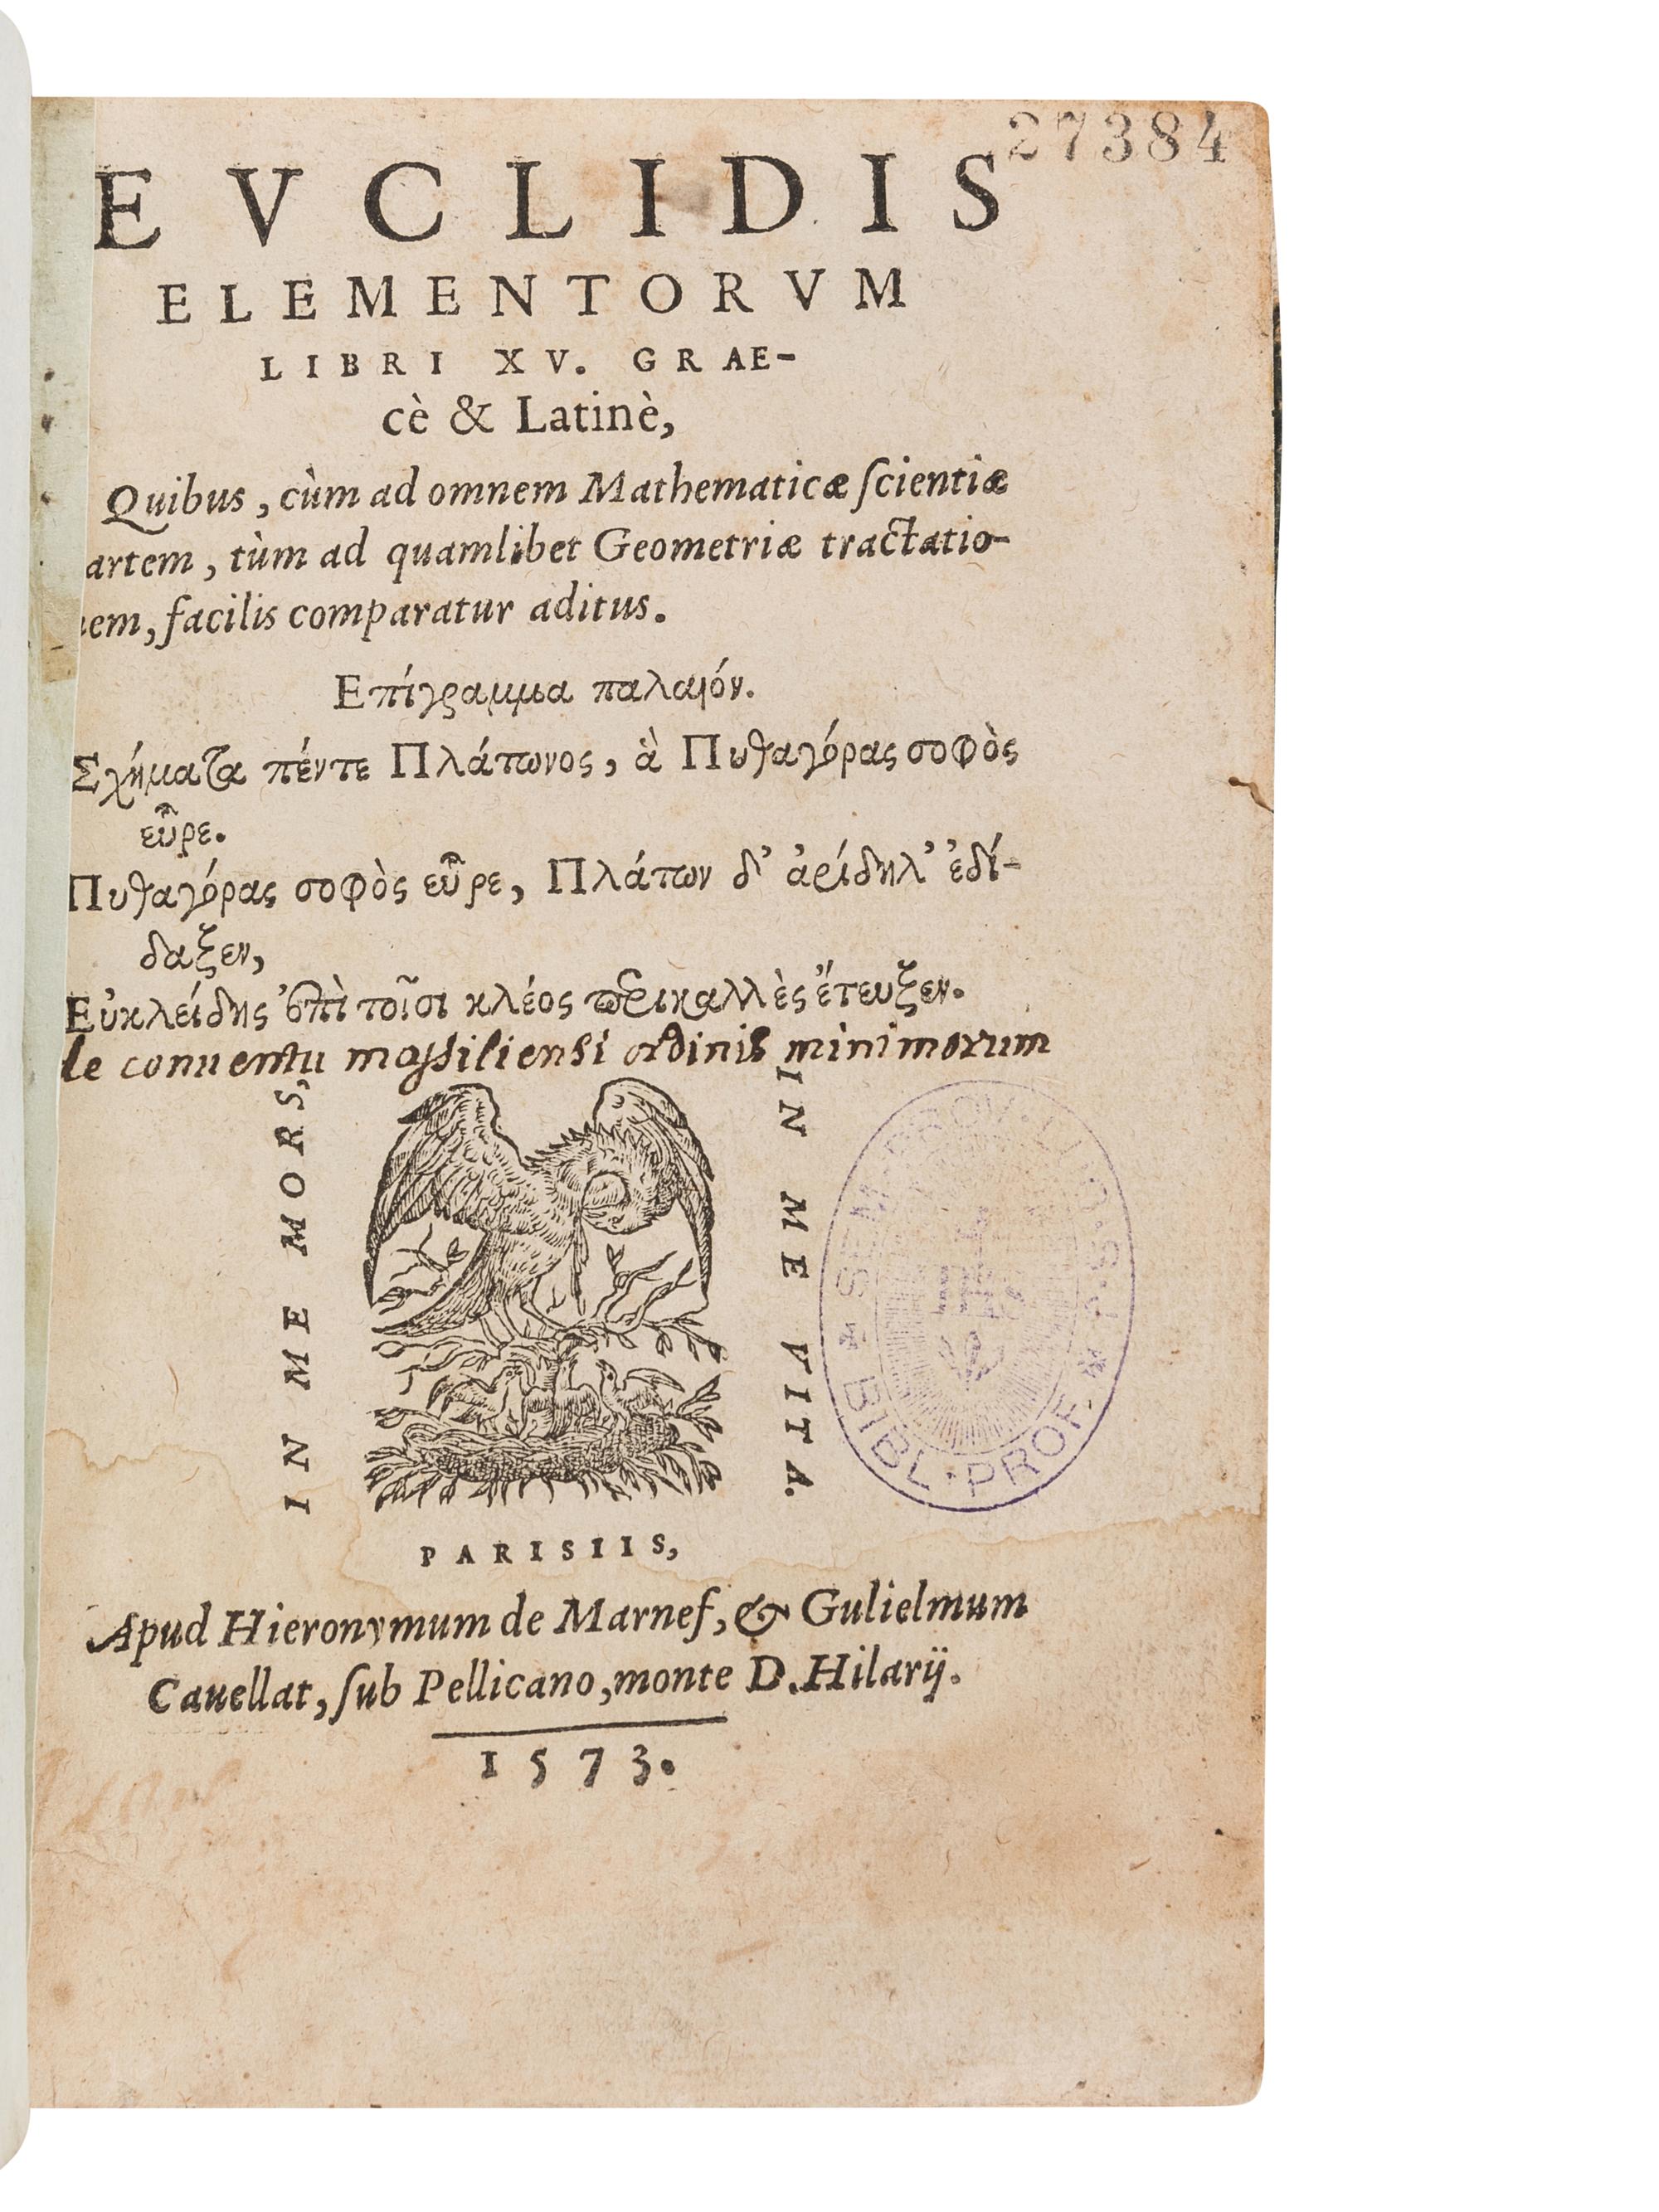 27384
EVCLIDIS
ELEMENTORVM
LIBRI XV. GRAE-
cè & Latinè,
Quibus, cùm ad omnem Mathematicæ ſcientiæ
artem, tùm ad quamlibet Geometriæ tractatio-
em, facilis comparatur aditus.
Επίγραμμα παλαιόν.
Σχήματα πέντε Πλάτωνος, ἃ Πυθαγόρας σοφὸς
εὗρε.
Πυθαγόρας σοφὸς εὗρε, Πλάτων δ’ ἀρίδηλ’ ἐδί-
δαξεν,
Εὐκλείδης ἐπὶ τοῖσι κλέος περικαλλὲς ἔτευξεν.
de conuentu maſsiliensi ordinis minimorum
IN ME MORS,
IN ME VITA.
BIBL. PROF.
PARISIIS,
Apud Hieronymum de Marnef, & Gulielmum
Cauellat, ſub Pellicano, monte D. Hilarij.
1573.